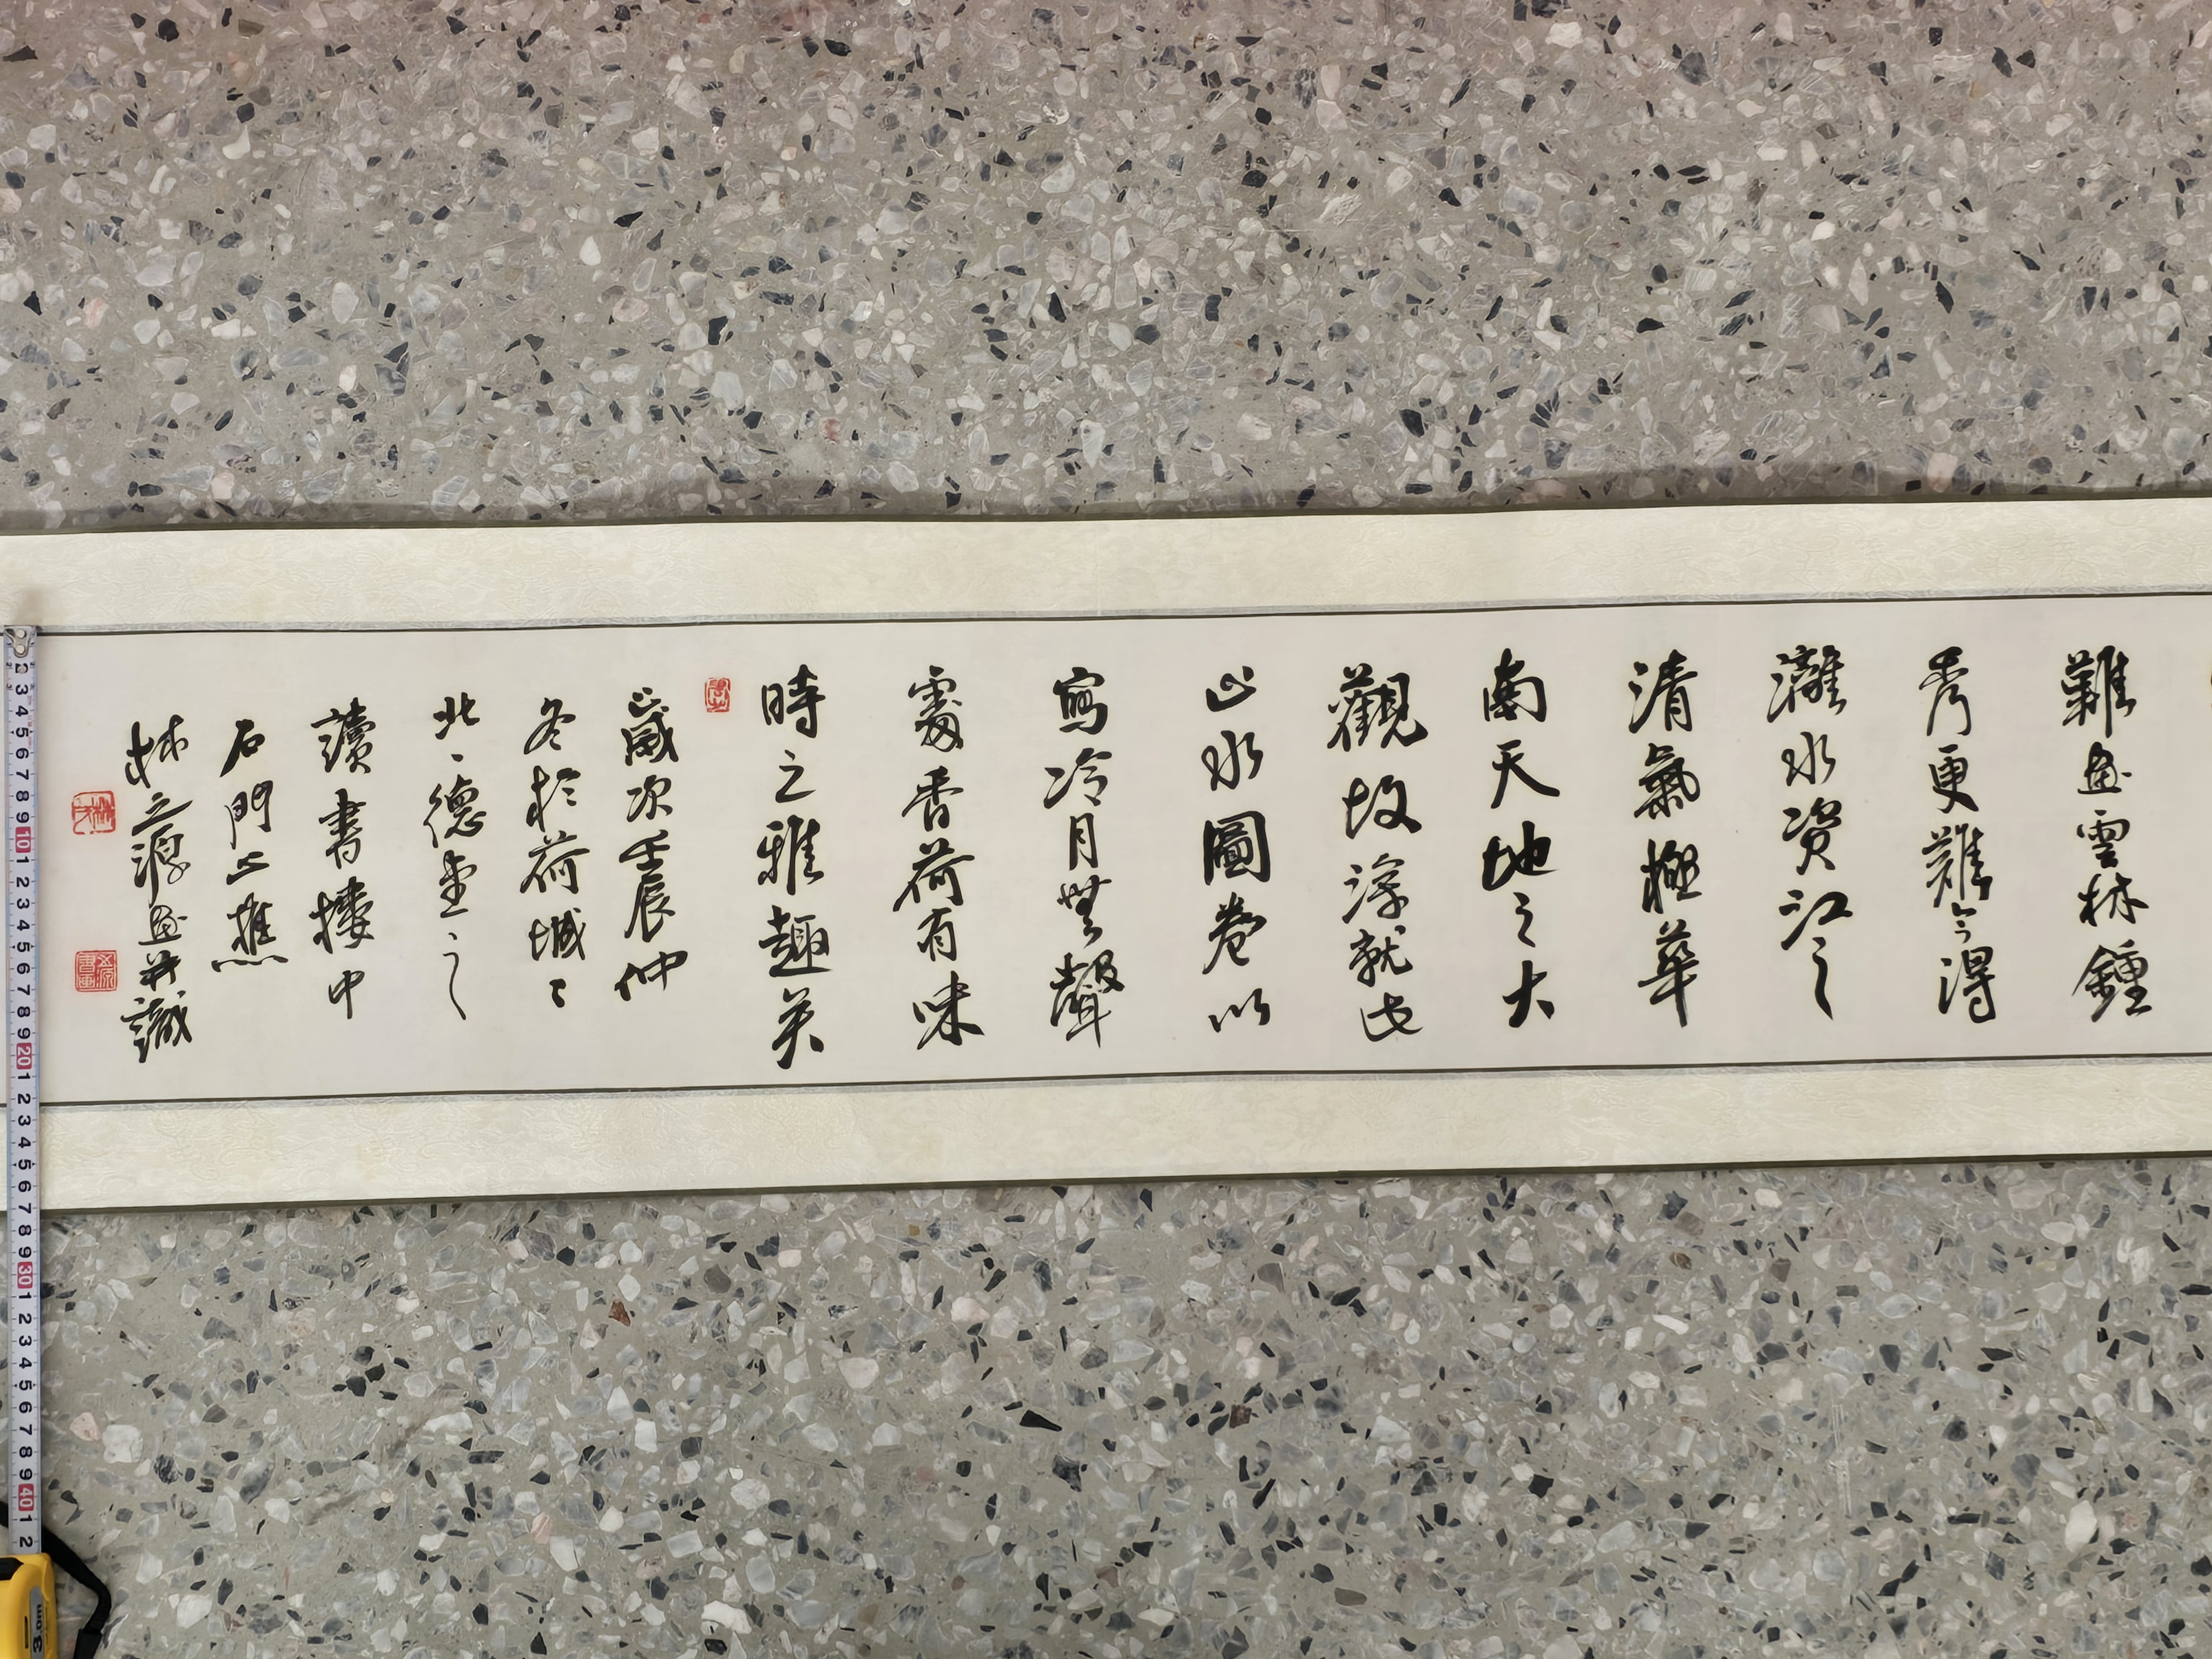 難畫雲林鍾
秀更難今得
灕水資江之
清氣極華
南天地之大
觀故淳就此
山水圖卷以
寫冷月無聲
處香荷有味
時之雅趣矣
歲次壬辰仲
冬於荷城之
北德堂之
讀書樓中
石門山樵
林之源畫并識
3.0m